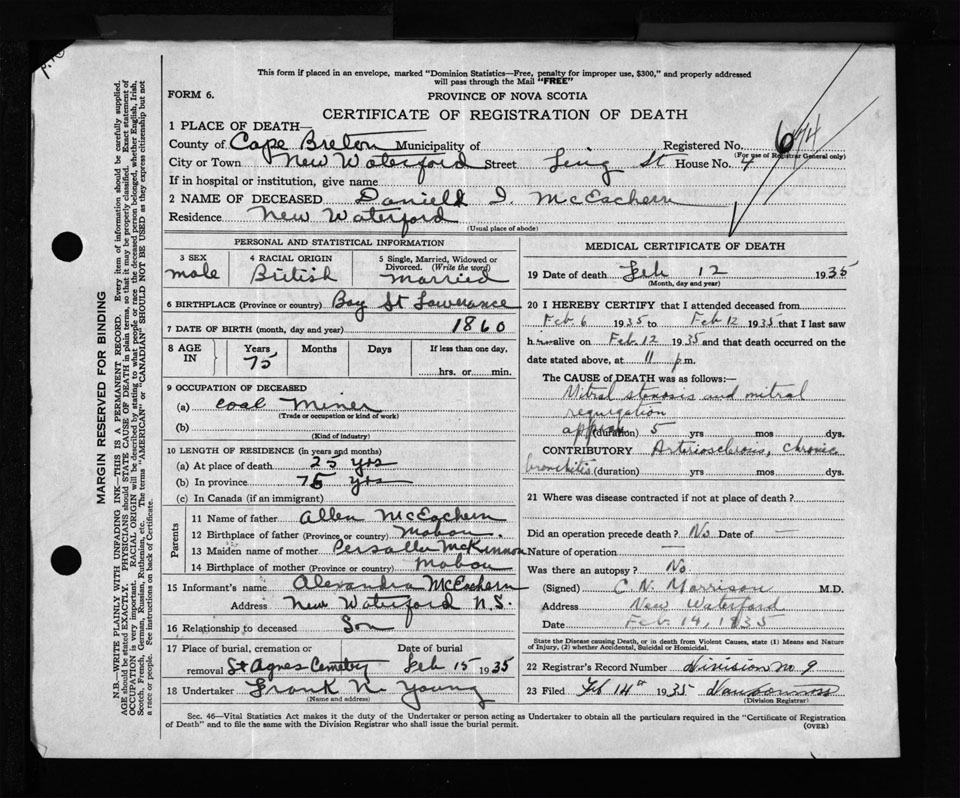 This form if placed in an envelope, marked "Dominion Statistics—Free, penalty for improper use, $300," and properly addressed
will pass through the Mail "FREE"
FORM 6.
PROVINCE OF NOVA SCOTIA
CERTIFICATE OF REGISTRATION OF DEATH
1 PLACE OF DEATH—
County of Cape Breton Municipality of Registered No. 6
(For use of Registrar General only)
City or Town New Waterford Street St House No. 4
If in hospital or institution, give name
2 NAME OF DECEASED Daniel I. McEachern
Residence New Waterford
(Usual place of abode)
PERSONAL AND STATISTICAL INFORMATION
3 SEX male
4 RACIAL ORIGIN British
5 Single, Married, Widowed or Divorced. (Write the word) Married
6 BIRTHPLACE (Province or country) Bay St Lawerance
7 DATE OF BIRTH (month, day and year) 1860
8 AGE IN Years 75 Months Days If less than one day, hrs. or min.
9 OCCUPATION OF DECEASED
(a) Coal Miner
(Trade or occupation or kind of work)
(b)
(Kind of industry)
10 LENGTH OF RESIDENCE (in years and months)
(a) At place of death 25 yrs
(b) In province 75 yrs
(c) In Canada (if an immigrant)
Parents
11 Name of father Allen McEachern
12 Birthplace of father (Province or country) Mabou
13 Maiden name of mother McKinnon
14 Birthplace of mother (Province or country) Mabou
15 Informant's name McEachern
Address New Waterford N.S.
16 Relationship to deceased Son
17 Place of burial, cremation or removal St Agnes Cemetry
Date of burial Feb 15 1935
18 Undertaker Frank N. Young
(Name and address)
MEDICAL CERTIFICATE OF DEATH
19 Date of death Feb 12 1935
(Month, day and year)
20 I HEREBY CERTIFY that I attended deceased from
Feb 6 1935 to Feb 12 1935 that I last saw
him alive on Feb 12 1935 and that death occurred on the
date stated above, at 11 p.m.
The CAUSE of DEATH was as follows:—
Mitral stenosis and mitral
regurgitation
approx (duration) 5 yrs mos dys.
CONTRIBUTORY Arteriosclerosis, chronic
bronchitis (duration) yrs mos dys.
21 Where was disease contracted if not at place of death?
Did an operation precede death? No Date of —
Nature of operation —
Was there an autopsy? No
(Signed) C. N. Morrison M.D.
Address New Waterford
Date Feb 14, 1935
State the Disease causing Death, or in death from Violent Causes, state (1) Means and Nature
of Injury, (2) whether Accidental, Suicidal or Homicidal.
22 Registrar's Record Number Division No 9
23 Filed Feb 14th 1935
(Division Registrar)
Sec. 46—Vital Statistics Act makes it the duty of the Undertaker or person acting as Undertaker to obtain all the particulars required in the "Certificate of Registration
of Death" and to file the same with the Division Registrar who shall issue the burial permit.
(OVER)
MARGIN RESERVED FOR BINDING
N.B.—WRITE PLAINLY WITH UNFADING INK—THIS IS A PERMANENT RECORD. Every item of information should be carefully supplied.
AGE should be stated EXACTLY. PHYSICIANS should STATE CAUSE OF DEATH in plain terms, so that it may be properly classified. Exact statement of
OCCUPATION is very important. RACIAL ORIGIN will be described by stating to what people or race the deceased person belonged, whether English, Irish,
Scotch, French, German, Russian, Ruthenian, etc. The terms "AMERICAN" or "CANADIAN" SHOULD NOT BE USED as they express citizenship but not
a race or people. See instructions on back of Certificate.